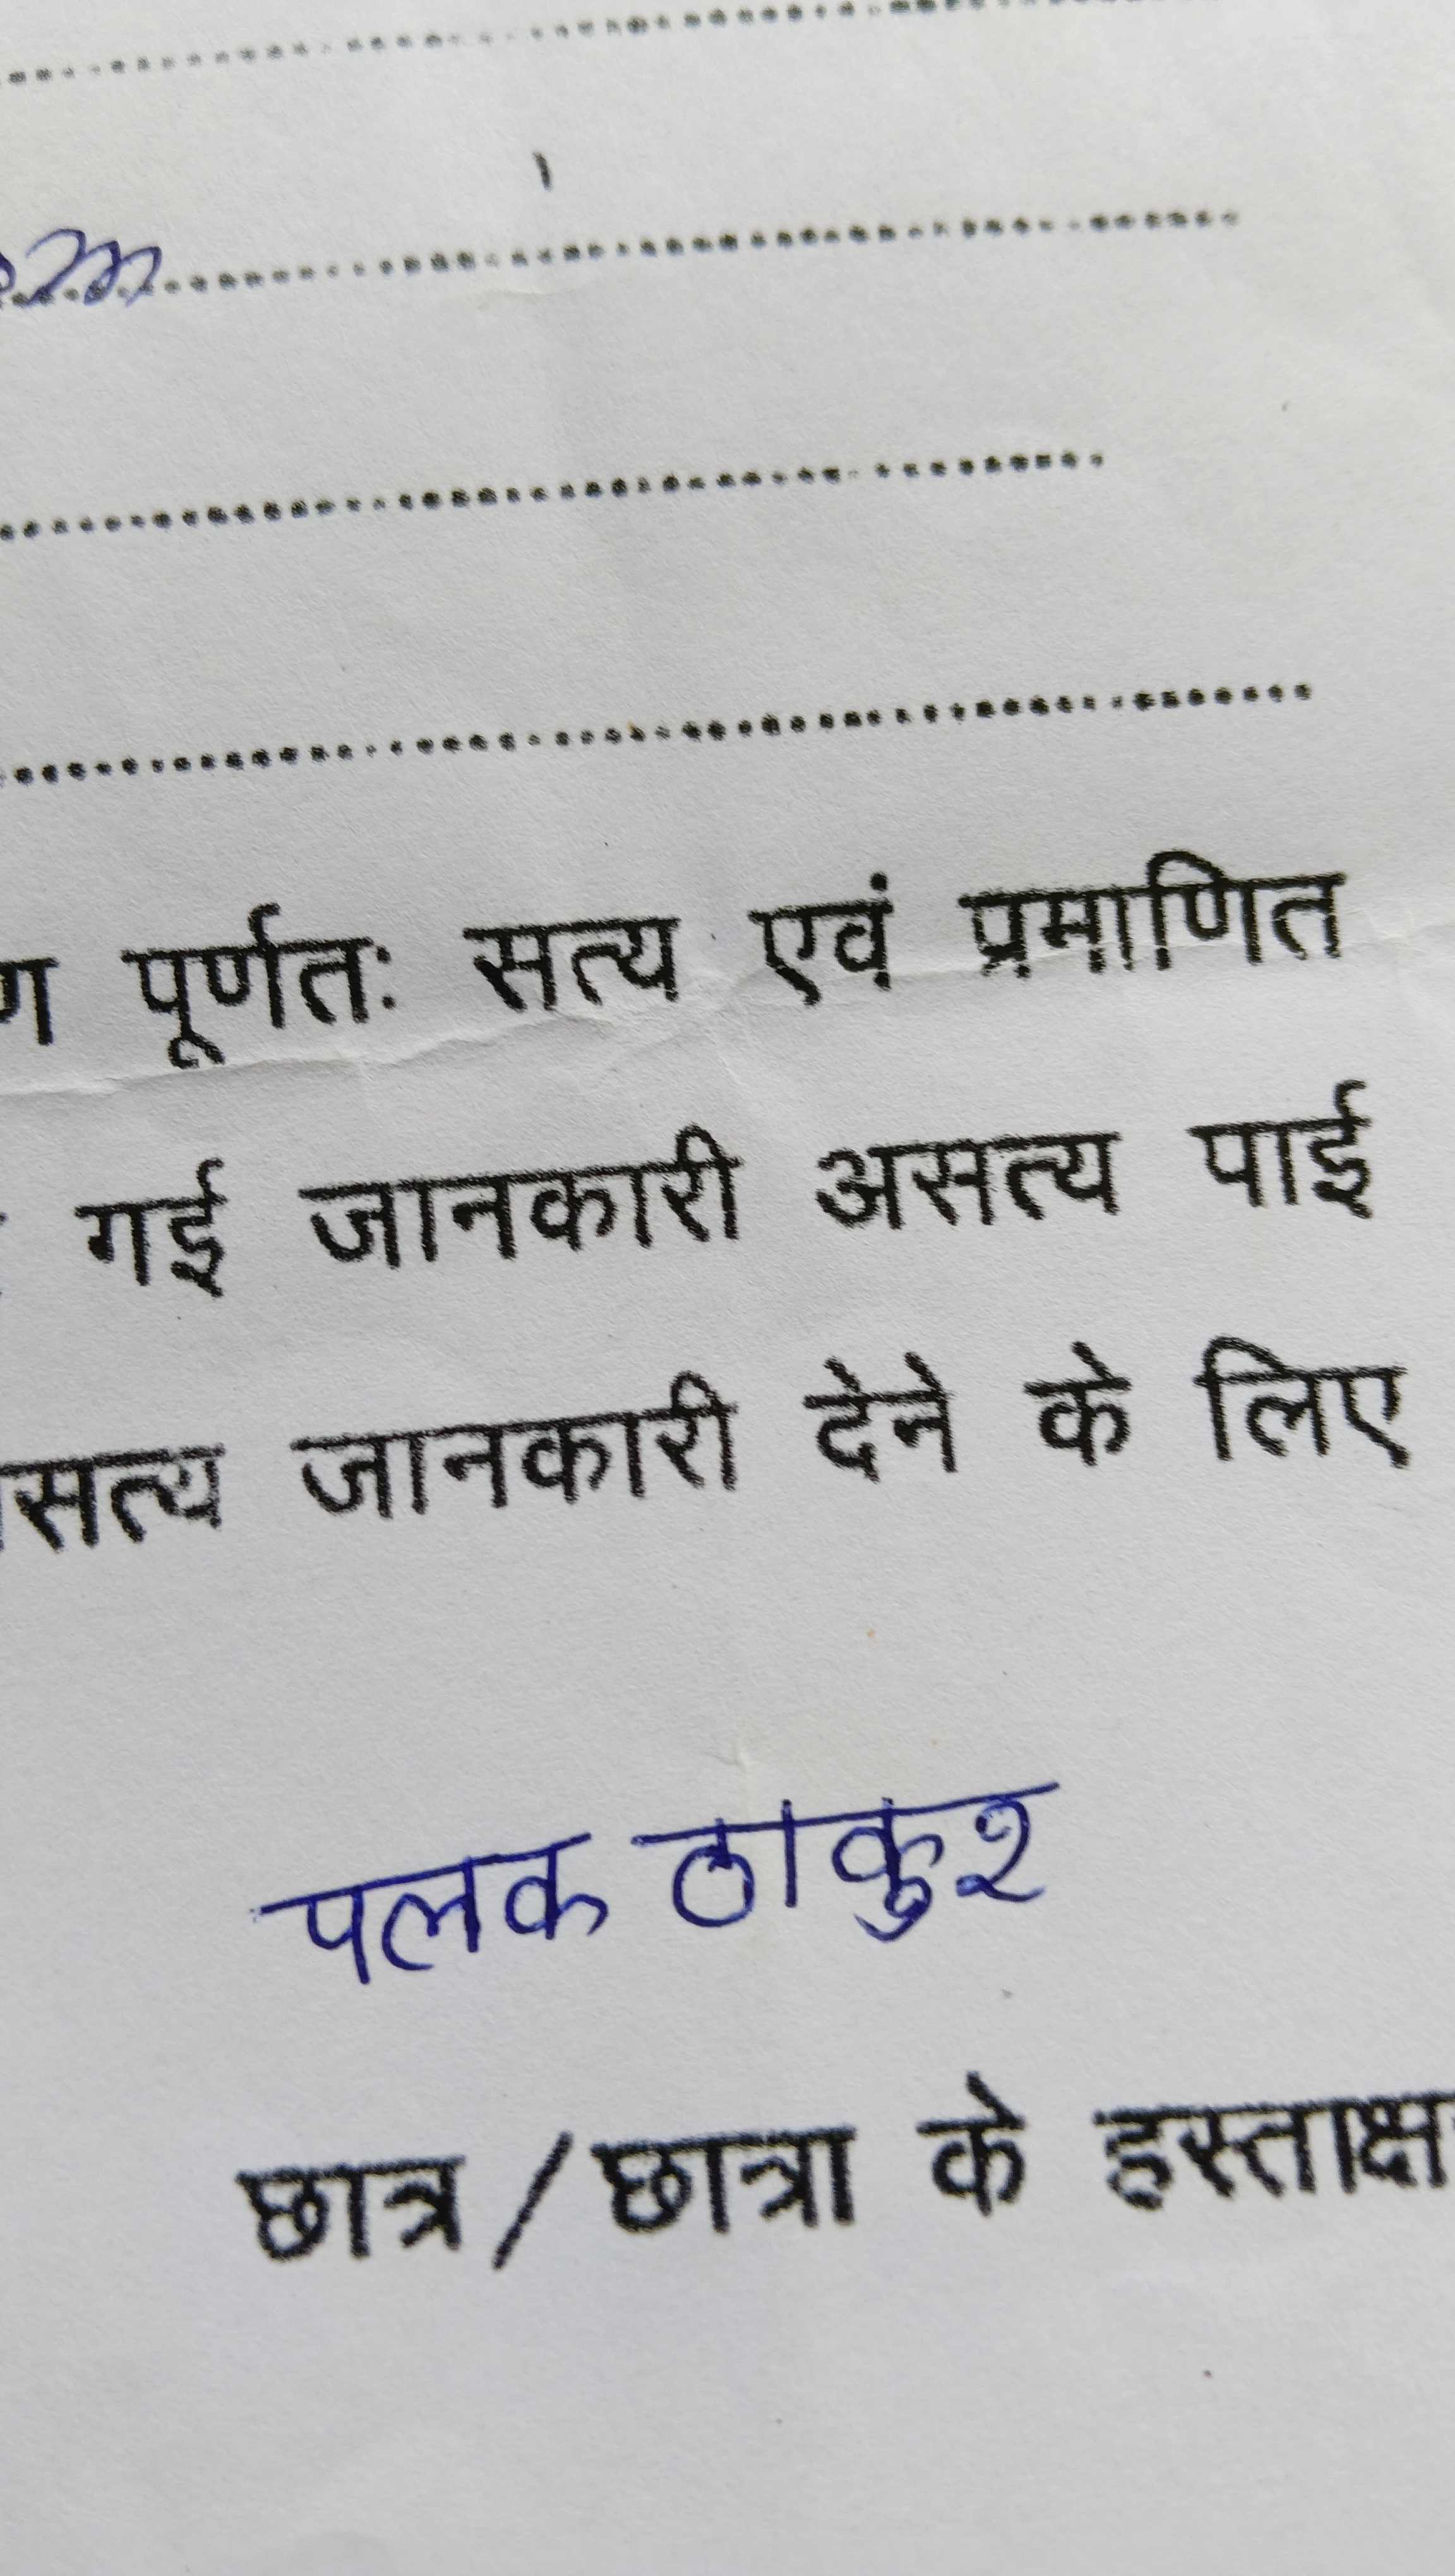 पूर्णतः सत्य एवं प्रमाणित
गई जानकारी असत्य पाई
जानकारी देने के लिए
पलक ठाकुर
छात्र/छात्रा के